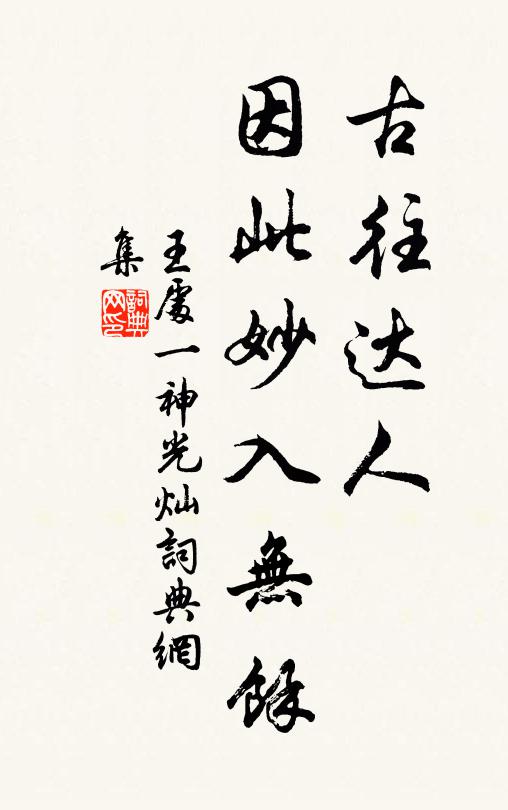 古往达人
因此妙入無餘
王處一神光灿詞典網
集
詞典网印